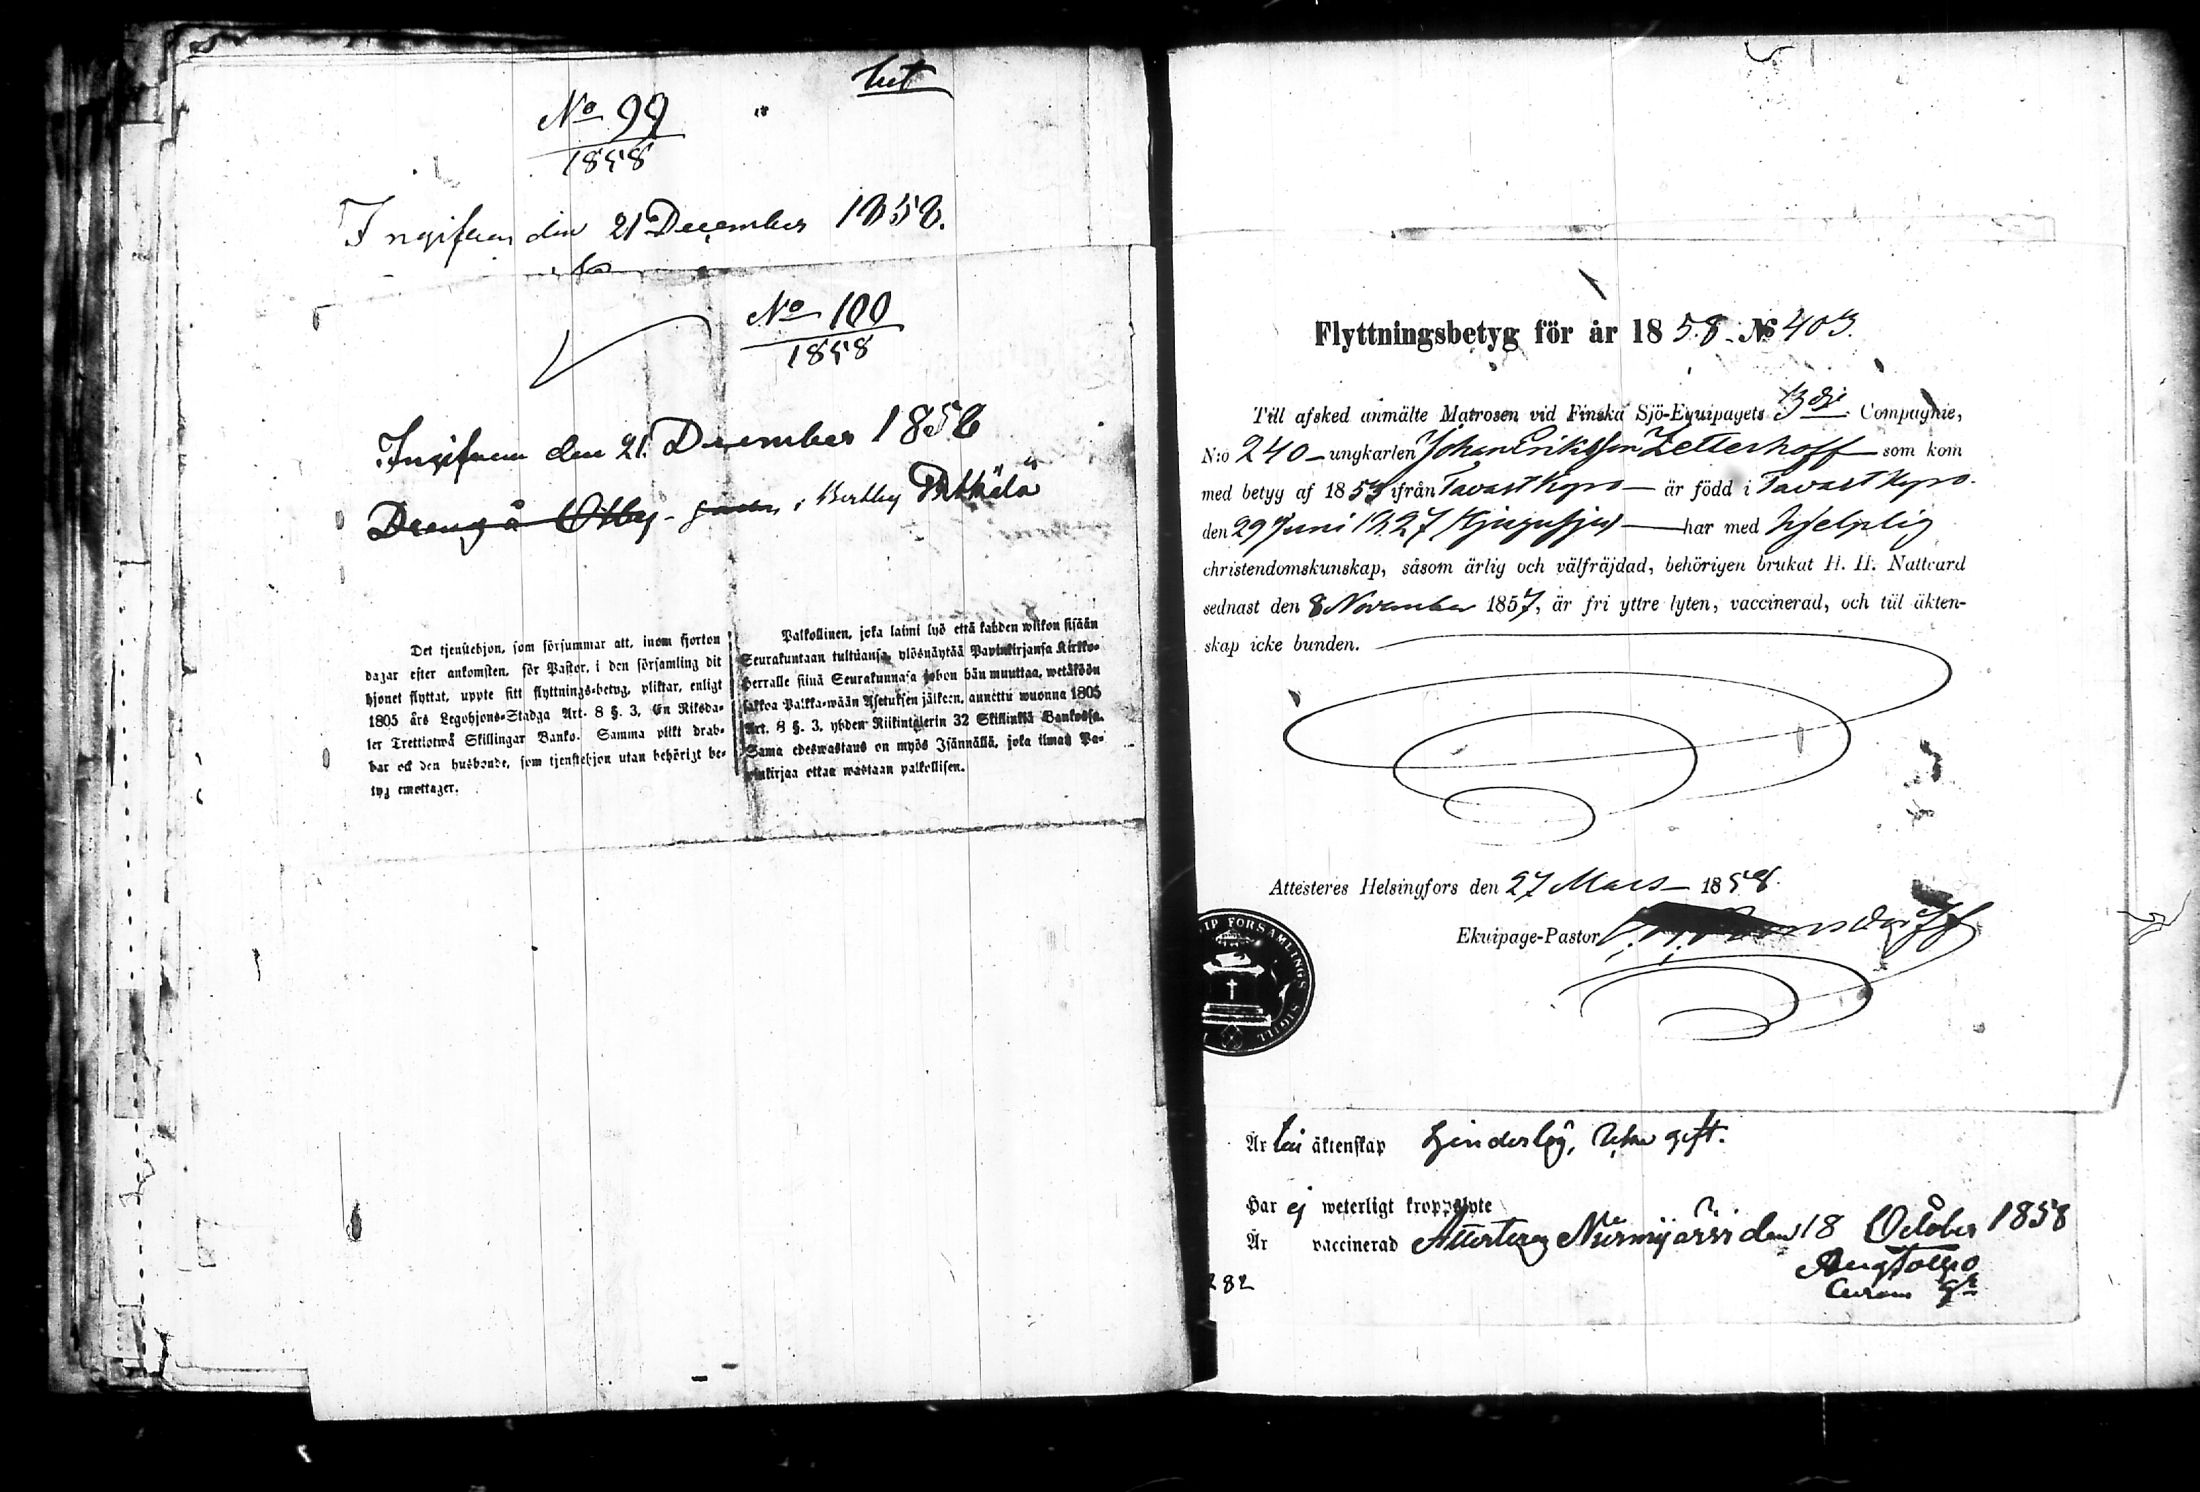 tut
No 99
1858
Ingifven den 21 December 1858.
No 100
1858
Ingifven den 21 December 1858
Dreng å Otby - i Bertby
Det tjenstehjon, som försummar att, inom fjorton
dagar efter ankomsten, för Pastor, i den församling dit
hjonet flyttat, uppte sitt flyttnings-betyg, pliktar, enligt
1805 års Legohjons-Stadga Art. 8 §. 3, En Riksda-
ler Trettiotwå Skillingar Banko. Samma plikt drab-
bar ock den husbonde, som tjenstehjon utan behörigt be-
tyg emottager.
Palkollinen, joka laimi lyö että kahden wiikon sisään
Seurakuntaan tultuansa ylösnäytää Papinkirjansa Kirkko-
Herralle siinä Seurakunnasa johon hän muuttaa, wetäköön
sakkoa Palkka-wään Asetuksen jälkeen, annettu wuonna 1805
Art. 8 §. 3, yhden Riikintalerin 32 Skillinkiä Bankossa.
Sama edeswastaus on myös Isännällä, joka ilman Pa-
pinkirjaa ottaa wastaan palkollisen.
Flyttningsbetyg för år 1858. No 403.
Till afsked anmälte Matrosen vid Finska Sjö-Equipagets 3dje Compagnie,
N:o 240 - ungkarlen Johan Eriksson Zetterhoff - som kom
med betyg af 1853 ifrån Tavastkyro - är född i Tavastkyro.
den 29 Juni 1827 - har med hjelplig
christendomskunskap, såsom ärlig och välfräjdad, behörigen brukat H. H. Nattvard
sednast den 8 November 1857, är fri yttre lyten, vaccinerad, och till äkten-
skap icke bunden.
Attesteres Helsingfors den 27 Mars 1858.
Ekuipage-Pastor
IP FORSAMLINGS SIGILL
Är till äktenskap hinderlös, gift.
Har ej weterligt kroppslyte
Är vaccinerad Attesterar Nurmijärvi den 18 October 1858
282